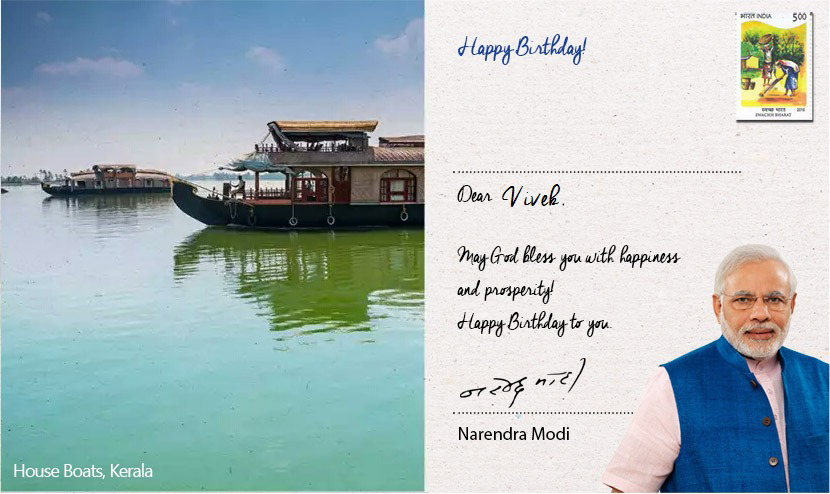 Happy Birthday!
भारत INDIA 500
स्वच्छ भारत 2015
SWACHH BHARAT
Dear Vivek,
May God bless you with happiness
and prosperity!
Happy Birthday to you.
नरेन्द्र मोदी
Narendra Modi
House Boats, Kerala